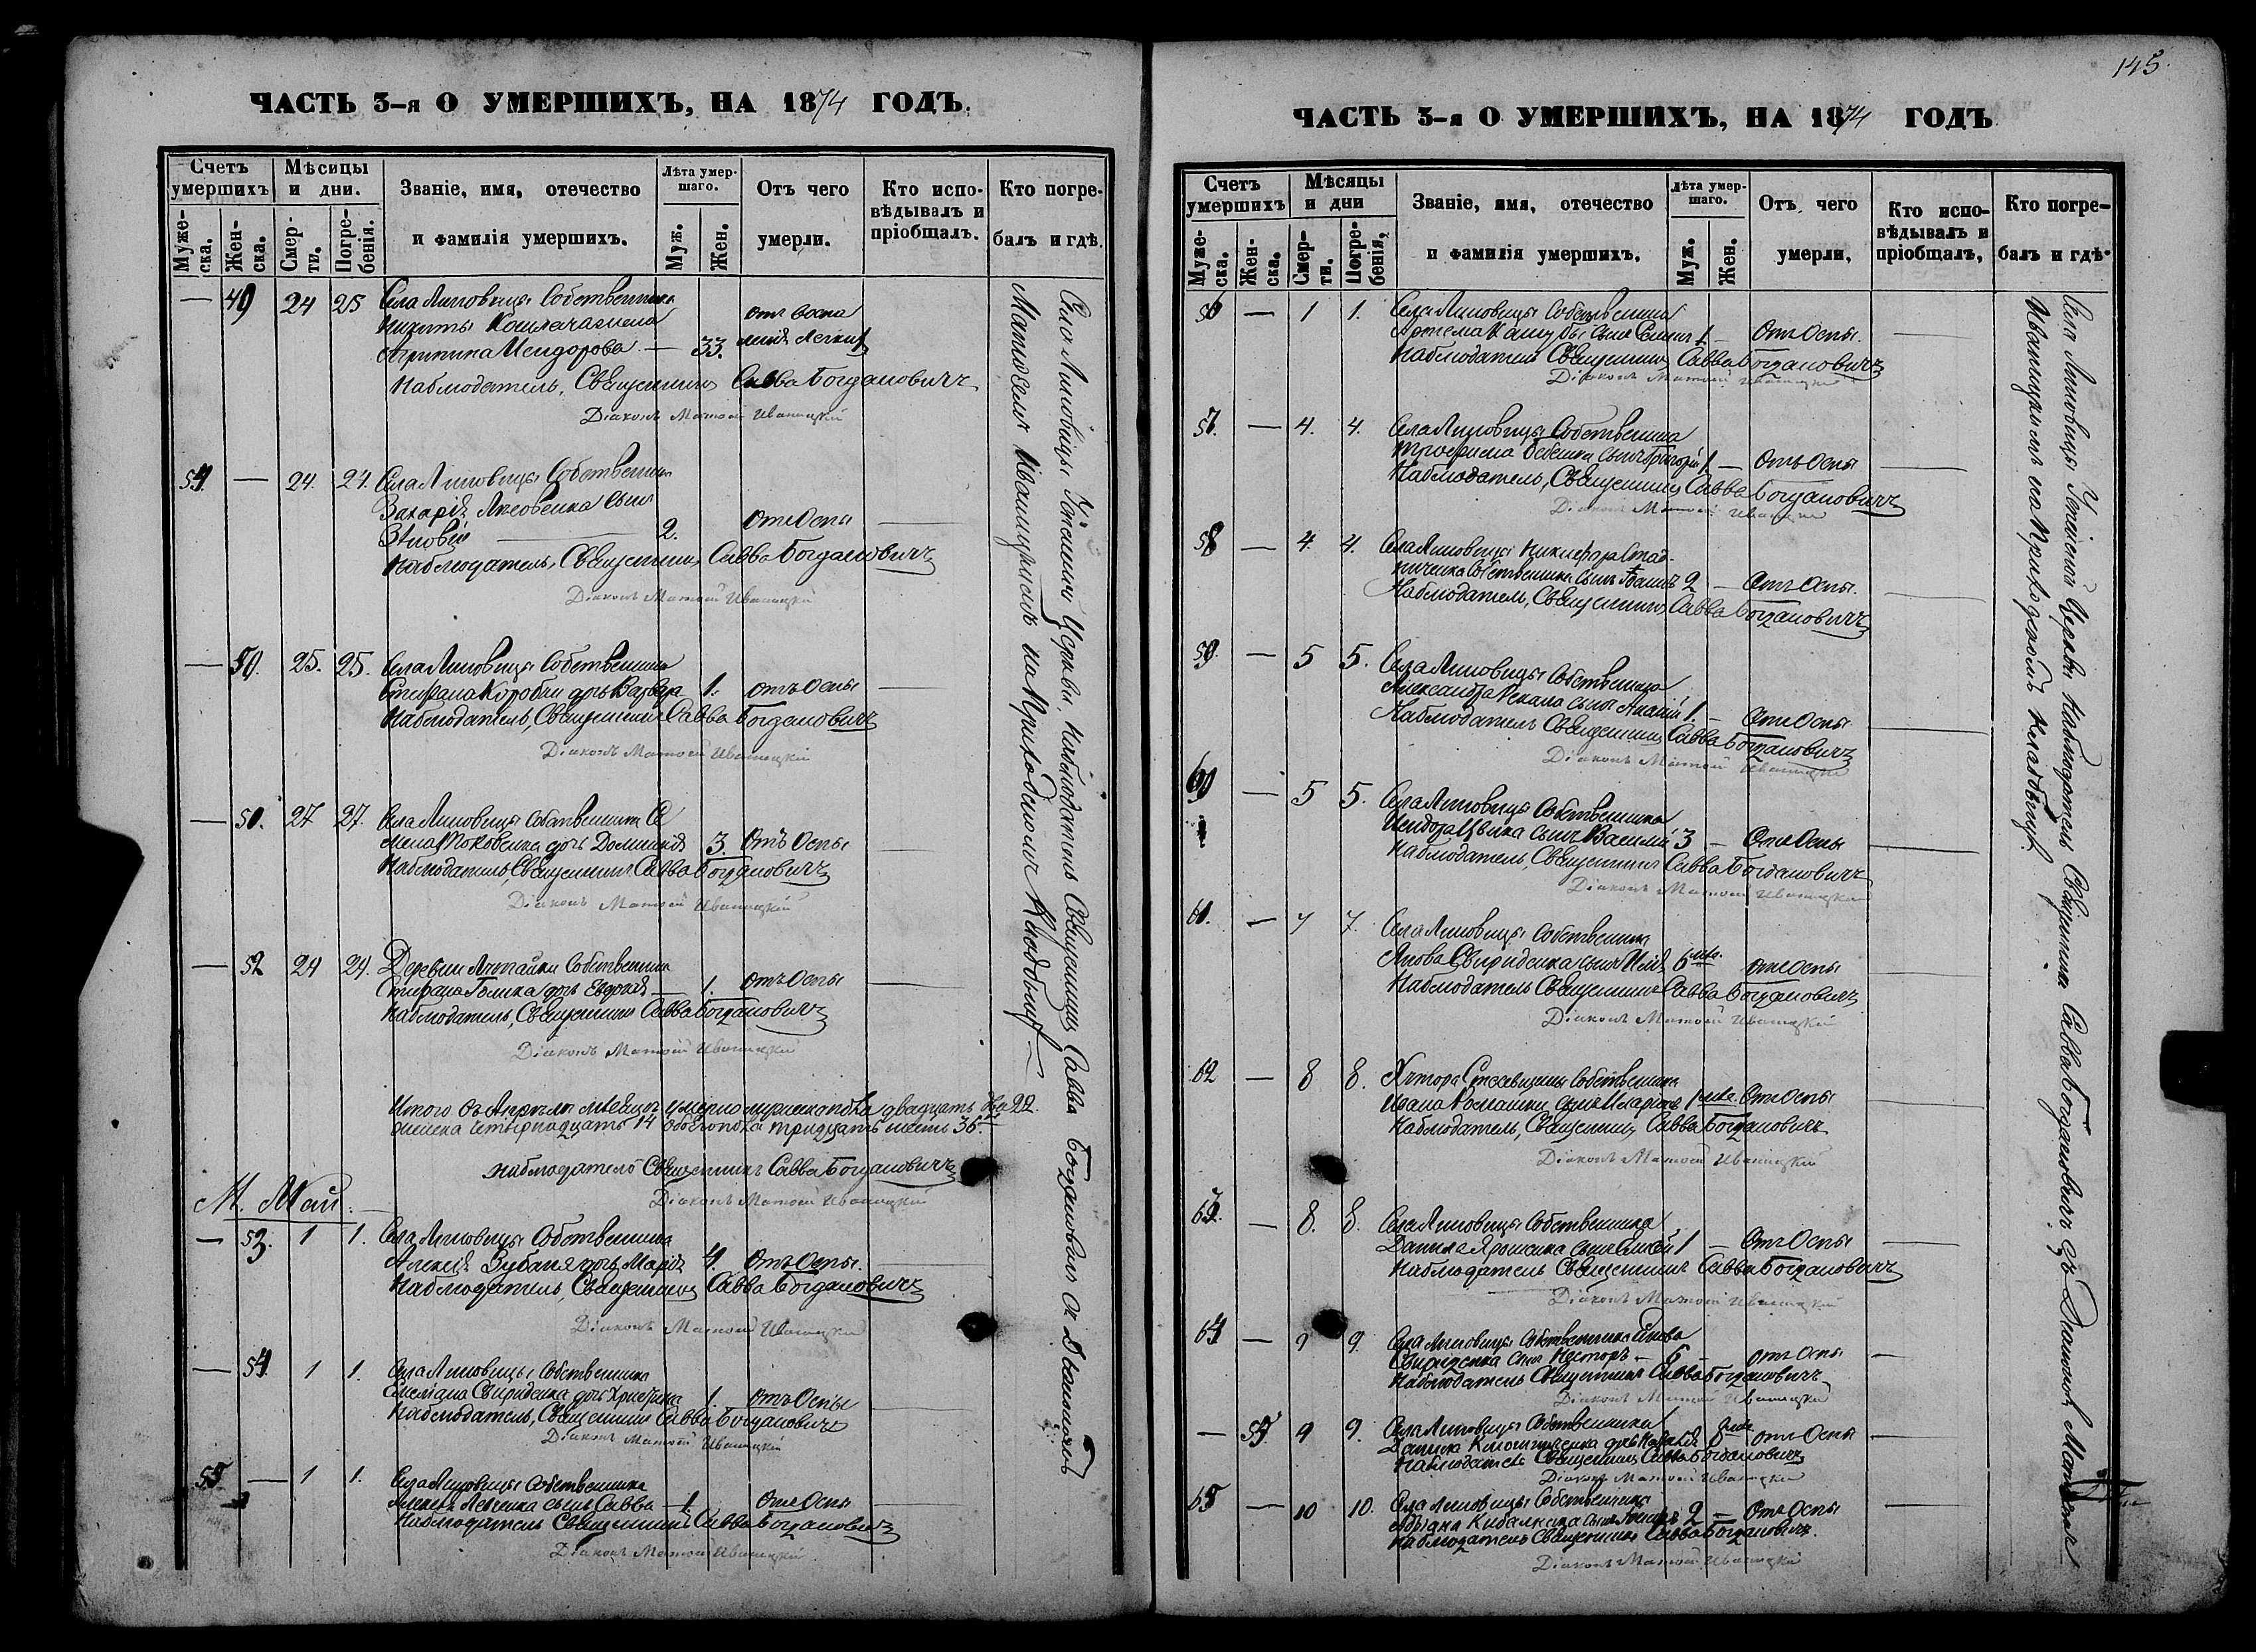 ЧАСТЬ 3-я О УМЕРШИХЪ, НА 1874 ГОДЪ.
Счетъ умершихъ
Мѣсяцы и дни.
Званіе, имя, отечество и фамилія умершихъ.
Лѣта умершаго.
Отъ чего умерли.
Кто исповѣдывалъ и пріобщалъ.
Кто погребалъ и гдѣ.
Мужеска.
Женска.
Смерти.
Погребенія.
Муж.
Жен.
— 49 24 25 Села Липовицы Собственника
Никиты
Агрипина Исидорова — 33.
Наблюдатель, Священникъ Савва Богдановичъ
Діаконъ Матѳей Иваницкій
54. — 24. 24. Села Липовицы Собственника
Захарія сынъ
Зѣновій — 2. отъ Оспы —
Наблюдатель, Священникъ Савва Богдановичъ
Діаконъ Матѳей Иваницкій
— 50. 25. 25. Села Липовицы Собственника
Стефана Коробки дочь Варвара 1. отъ Оспы —
Наблюдатель, Священникъ Савва Богдановичъ
Діаконъ Матѳей Иваницкій
— 51. 27 27. Села Липовицы Собственника
дочь Домникія 3. Отъ Оспы —
Наблюдатель, Священникъ Савва Богдановичъ
Діаконъ Матѳей Иваницкій
— 52 24 24. Деревни Собственника
Стефана дочь Евдокія — 1. отъ Оспы —
Наблюдатель, Священникъ Савва Богдановичъ
Діаконъ Матѳей Иваницкій
Итого въ Апрѣлѣ мѣсяцѣ умерло мужеска пола двадцать два 22.
женска четырнадцать 14 обоего пола тридцать шесть 36.
Наблюдатель Священникъ Савва Богдановичъ
Діаконъ Матѳей Иваницкій
М. Май.
— 53. 1 1. Села Липовицы Собственника
Алексія Зубаня дочь Марія 4. Отъ Оспы. —
Наблюдатель, Священникъ Савва Богдановичъ
Діаконъ Матѳей Иваницкій
— 54. 1 1. Села Липовицы Собственника
Емеліана Свириденка дочь Христина 1. отъ Оспы —
Наблюдатель, Священникъ Савва Богдановичъ
Діаконъ Матѳей Иваницкій
55 — 1 1. Села Липовицы Собственника
сынъ Савва — 1. отъ Оспы —
Наблюдатель Священникъ Савва Богдановичъ
Діаконъ Матѳей Иваницкій
Села Липовицы Успенской Церкви, Наблюдатель Священникъ Савва Богдановичъ съ Діакономъ
Матѳеемъ Иваницкимъ на Приходскомъ Кладбищѣ —
145.
ЧАСТЬ 3-я О УМЕРШИХЪ, НА 1874 ГОДЪ
Счетъ умершихъ
Мѣсяцы и дни
Званіе, имя, отечество и фамилія умершихъ,
Лѣта умершаго.
Отъ чего умерли,
Кто исповѣдывалъ и пріобщалъ,
Кто погребалъ и гдѣ.
Мужеска.
Женска.
Смерти.
Погребенія,
Муж.
Жен.
56 — 1 1. Села Липовицы Собственника
Артема сынъ 1 — Отъ Оспы. —
Наблюдатель Священникъ Савва Богдановичъ
Діаконъ Матѳей Иваницкій
57. — 4. 4. Села Липовицы Собственника
Трофима сынъ Григорій 1 — Отъ Оспы —
Наблюдатель, Священникъ Савва Богдановичъ
Діаконъ Матѳей Иваницкій
58 — 4. 4. Села Липовицы Никифора
Собственника сынъ Іоаннъ 2 — Отъ Оспы. —
Наблюдатель, Священникъ Савва Богдановичъ
59. — 5 5. Села Липовицы Собственника
Александра сынъ 1. — Отъ Оспы —
Наблюдатель Священникъ Савва Богдановичъ
Діаконъ Матѳей Иваницкій
60 — 5 5. Села Липовицы Собственника
Исидора сынъ Василій 3 — Отъ Оспы —
Наблюдатель, Священникъ Савва Богдановичъ
Діаконъ Матѳей Иваницкій
61. — 7 7. Села Липовицы Собственника
Якова Свириденка сынъ 6 отъ Оспы —
Наблюдатель Священникъ Савва Богдановичъ
Діаконъ Матѳей Иваницкій
62 — 8 8. Хутора Собственника
Ивана Ромашки сынъ 1 Отъ Оспы —
Наблюдатель, Священникъ Савва Богдановичъ
Діаконъ Матѳей Иваницкій
63. — 8. 8. Села Липовицы Собственника
Данила сынъ 1 — Отъ Оспы —
Наблюдатель Священникъ Савва Богдановичъ
Діаконъ Матѳей Иваницкій
64 — 9 9. Села Липовицы Собственника Якова
Свириденка сынъ Несторъ — 6 — отъ Оспы —
Наблюдатель Священникъ Савва Богдановичъ
Діаконъ Матѳей Иваницкій
— 55. 9 9. Села Липовицы Собственника
дочь 8 отъ Оспы —
Наблюдатель Священникъ Савва Богдановичъ
Діаконъ Матѳей Иваницкій
65 — 10 10. Села Липовицы Собственника
сынъ 2 — Отъ Оспы —
Наблюдатель Священникъ Савва Богдановичъ.
Діаконъ Матѳей Иваницкій
Села Липовицы Успенской Церкви Наблюдатель Священникъ Савва Богдановичъ съ Діакономъ Матѳеемъ
Иваницкимъ на Приходскомъ Кладбищѣ.